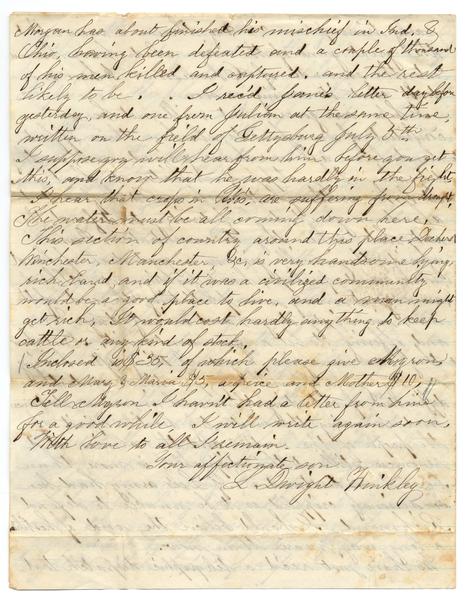 Morgan has about finished his mischief in Ind. &
Ohio, having been defeated and a couple of thousand
of his men killed and captured. and the rest
likely to be. . I rec'd letter day before
yesterday, and one from Julius at the same time,
written on the field of Gettysburg July 5th
I suppose you will hear from him before you get
this, and know that he was hardly in the fight
I hear that crops in Wis. are suffering from
The water must be all coming down here.
This section of country around this place
Winchester, Manchester &c, is very handsome lying,
rich land, and if it was a civilized community
would be a good place to live, and a man might
get rich. It would cost hardly anything to keep
cattle or any kind of stock.
Inclosed is $ 35, of which please give Myron
and Mary & Maria $5, a piece and Mother $10,
Tell Myron I havn't had a letter from him
for a good while. I will write again soon.
With love to all I remain.
Your affectionate son
L Dwight Hinkley